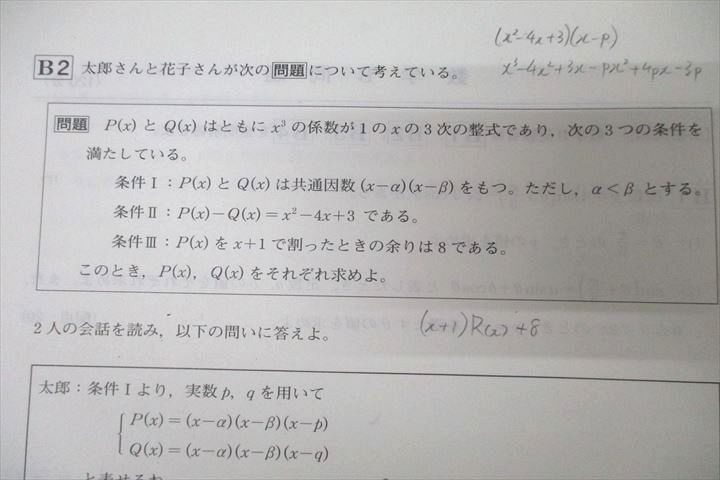 (x²-4x+3)(x-p)
B2 太郎さんと花子さんが次の問題について考えている。
x³-4x²+3x-px²+4px-3p
問題 P(x) と Q(x) はともに x³ の係数が1の x の3次の整式であり，次の3つの条件を
満たしている。
条件Ⅰ：P(x) と Q(x) は共通因数 (x-α)(x-β) をもつ。ただし，α<β とする。
条件Ⅱ：P(x)-Q(x)=x²-4x+3 である。
条件Ⅲ：P(x) を x+1 で割ったときの余りは8である。
このとき，P(x)，Q(x) をそれぞれ求めよ。
2人の会話を読み，以下の問いに答えよ。
(x+1)R(x)+8
太郎：条件Ⅰより，実数 p，q を用いて
P(x)=(x-α)(x-β)(x-p)
Q(x)=(x-α)(x-β)(x-q)
と表せるね